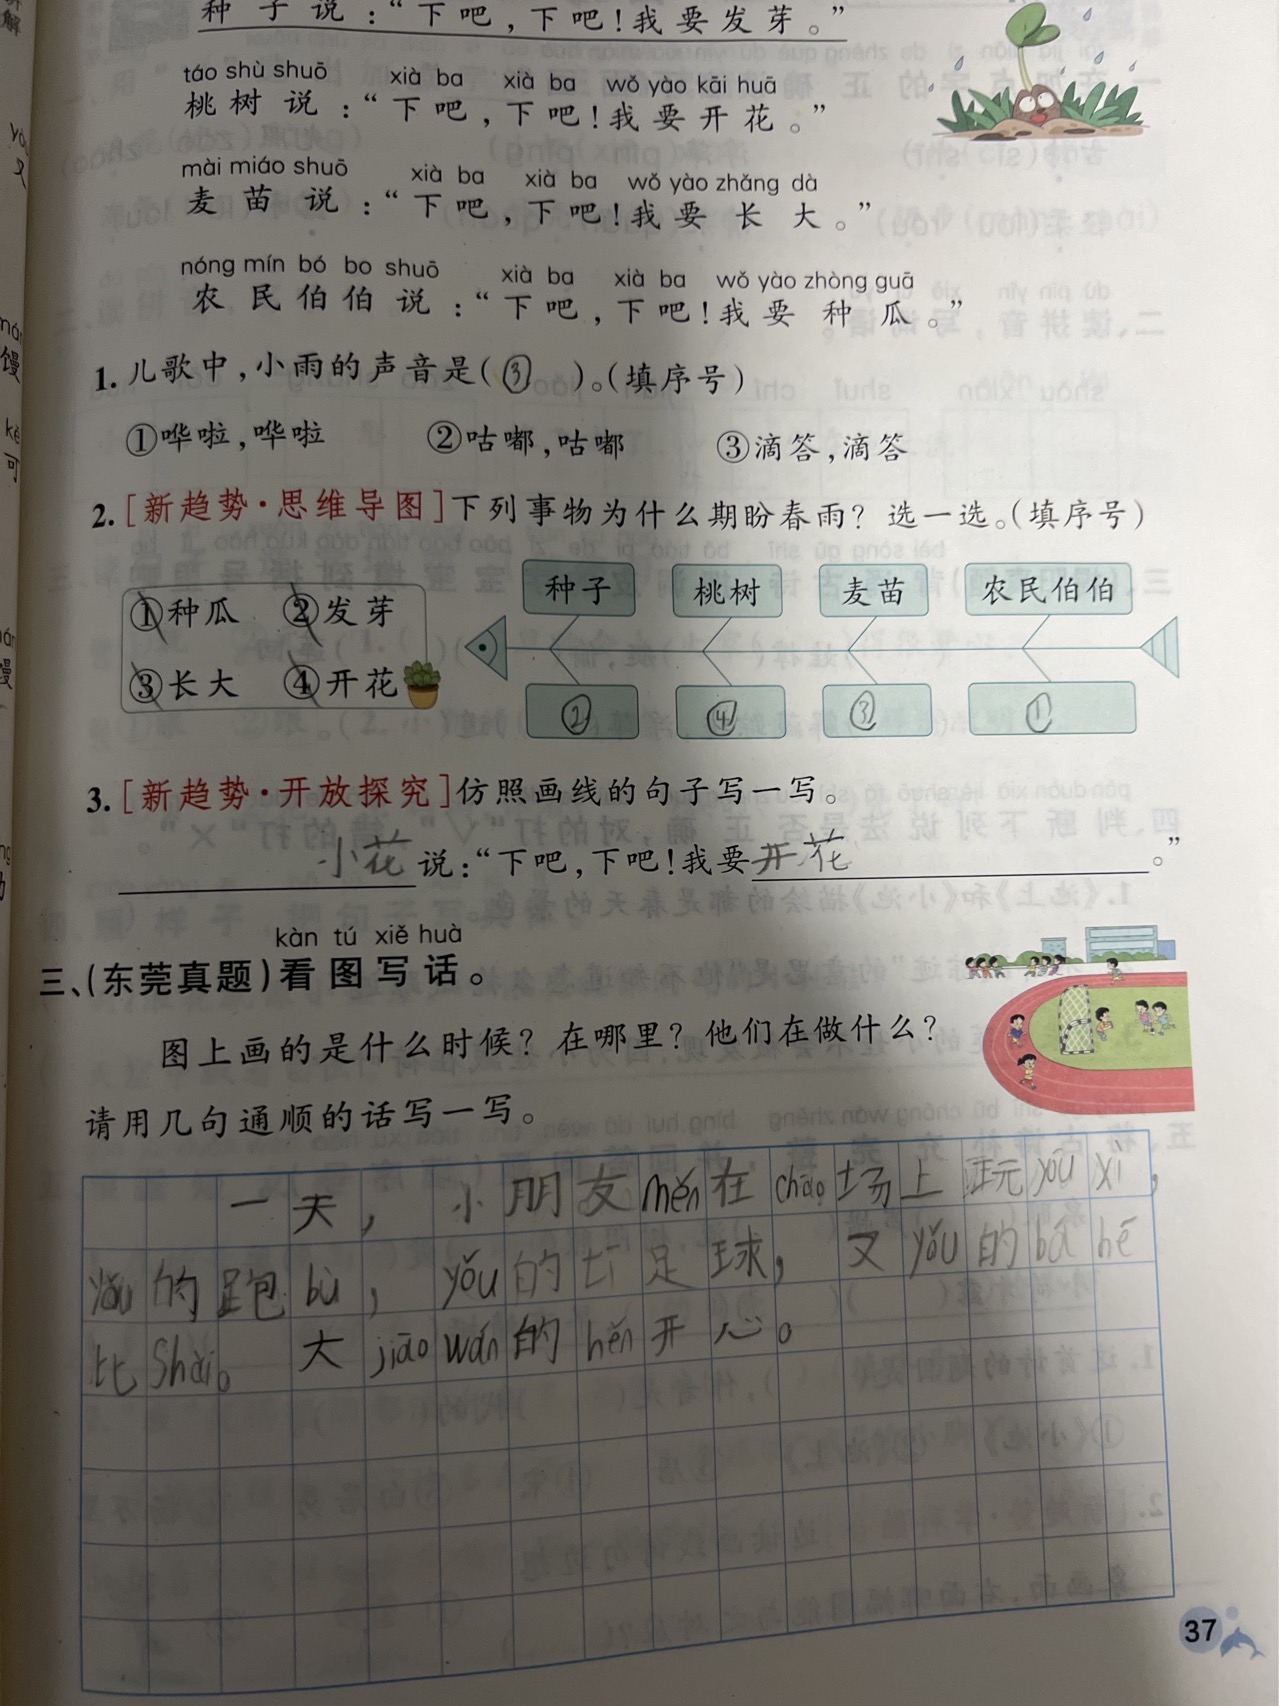 种子说：“下吧，下吧！我要发芽。”
táo shù shuō xià ba xià ba wǒ yào kāi huā
桃树说：“下吧，下吧！我要开花。”
mài miáo shuō xià ba xià ba wǒ yào zhǎng dà
麦苗说：“下吧，下吧！我要长大。”
nóng mín bó bo shuō xià ba xià ba wǒ yào zhòng guā
农民伯伯说：“下吧，下吧！我要种瓜。”
1. 儿歌中，小雨的声音是(③)。(填序号)
①哗啦，哗啦 ②咕嘟，咕嘟 ③滴答，滴答
2. [新趋势·思维导图]下列事物为什么期盼春雨？选一选。(填序号)
①种瓜 ②发芽
③长大 ④开花
种子 桃树 麦苗 农民伯伯
② ④ ③ ①
3. [新趋势·开放探究]仿照画线的句子写一写。
小花说：“下吧，下吧！我要开花。”
kàn tú xiě huà
三、(东莞真题)看图写话。
图上画的是什么时候？在哪里？他们在做什么？
请用几句通顺的话写一写。
一天，小朋友mén在chāo场上玩yóu xì，
yǒu的跑bù，yǒu的足球，又yǒu的bá hé
比Shài。大jiāo wán的hěn开心。
37